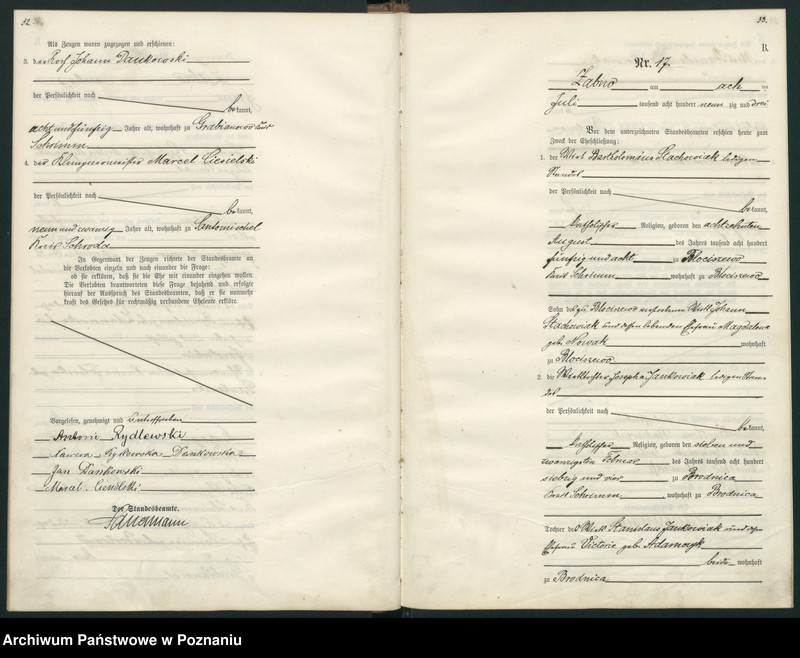 32
Als Zeugen waren zugezogen und erschienen:
3. der Johann Dankowski
der Persönlichkeit nach
bekannt,
achtundfünfzig Jahre alt, wohnhaft zu Grabianowo
Schrimm
4. der Klempnermeister Marcel Ciesielski
der Persönlichkeit nach
bekannt,
neunundzwanzig Jahre alt, wohnhaft zu Santomischel
Kreis Schroda
In Gegenwart der Zeugen richtete der Standesbeamte an
die Verlobten einzeln und nach einander die Frage:
ob sie erklären, daß sie die Ehe mit einander eingehen wollen.
Die Verlobten beantworteten diese Frage bejahend und erfolgte
hierauf der Ausspruch des Standesbeamten, daß er sie nunmehr
kraft des Gesetzes für rechtmäßig verbundene Eheleute erkläre.
Vorgelesen, genehmigt und unterschrieben
Antoni Rydlewski
Rydlewska Dankowska
Jan Dankowski
Marcel Ciesielski
Der Standesbeamte.
33.
B.
Nr. 17
Zabno am ach ten
Juli tausend acht hundert neun zig und drei
Vor dem unterzeichneten Standesbeamten erschienen heute zum
Zweck der Eheschließung:
1. der Wirt Bartholomäus Stachowiak ledigen
Standes
der Persönlichkeit nach
bekannt,
katholischer Religion, geboren den achtzehnten
August des Jahres tausend acht hundert
fünfzig und acht zu Blociszewo
Kreis Schrimm wohnhaft zu Blociszewo
Sohn des zu Blociszewo verstorbenen Wirth Johann
Stachowiak und dessen lebenden Ehefrau Magdalena
geb. Nowak wohnhaft
zu Blociszewo
2. die Wirthstochter Josepha Jankowiak ledigen Stan-
des
der Persönlichkeit nach
bekannt,
katholischer Religion, geboren den sieben und
zwanzigsten Februar des Jahres tausend acht hundert
siebzig und vier zu Brodnica
Kreis Schrimm wohnhaft zu Brodnica
Tochter des Wirth Stanislaus Jankowiak und dessen
Ehefrau Victorie geb. Adamczyk
beide wohnhaft
zu Brodnica
Archiwum Państwowe w Poznaniu